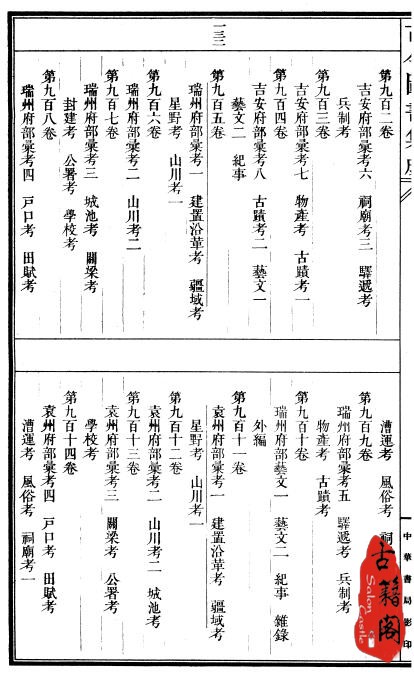 中華書局影印
一三
第九百二卷
吉安府部彙考六 祠廟考三 驛遞考
兵制考
第九百三卷
吉安府部彙考七 物產考 古蹟考一
第九百四卷
吉安府部彙考八 古蹟考二 藝文一
藝文二 紀事
第九百五卷
瑞州府部彙考一 建置沿革考 疆域考
星野考 山川考一
第九百六卷
瑞州府部彙考二 山川考二
第九百七卷
瑞州府部彙考三 城池考 關梁考
封建考 公署考 學校考
第九百八卷
瑞州府部彙考四 戶口考 田賦考
漕運考 風俗考 祠
第九百九卷
瑞州府部彙考五 驛遞考 兵制考
物產考 古蹟考
第九百十卷
瑞州府部藝文一 藝文二 紀事 雜錄
外編
第九百十一卷
袁州府部彙考一 建置沿革考 疆域考
星野考 山川考一
第九百十二卷
袁州府部彙考二 山川考二 城池考
第九百十三卷
袁州府部彙考三 關梁考 公署考
學校考
第九百十四卷
袁州府部彙考四 戶口考 田賦考
漕運考 風俗考 祠廟考一
古籍阁
Salon Castle